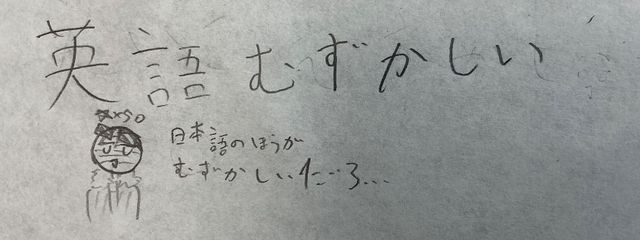 英語むずかしい
日本語のほうが
むずかしいだろ...